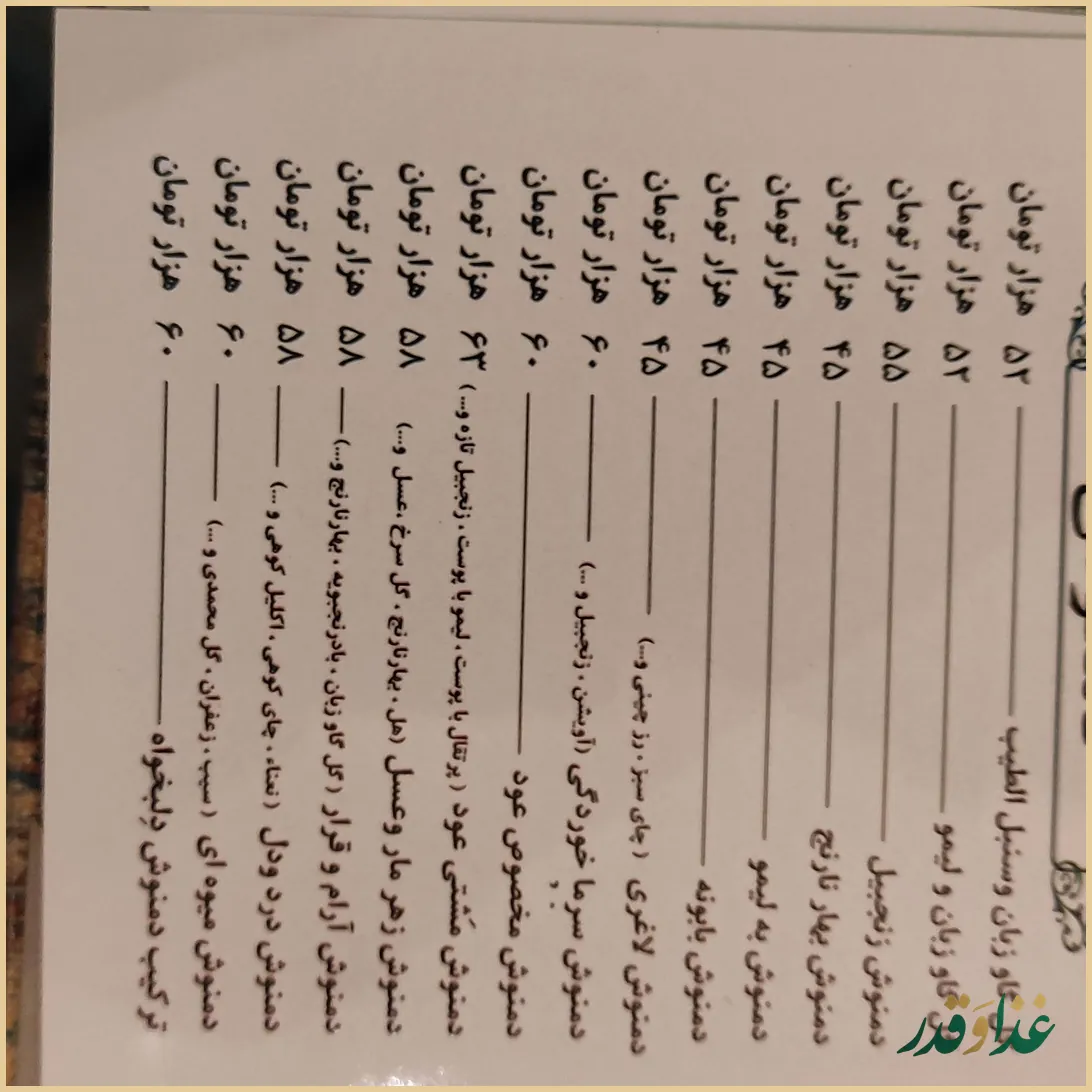 گاو زبان وسنبل الطیب ۵۲ هزار تومان
گاو زبان و لیمو ۵۲ هزار تومان
دمنوش زنجبیل ۵۵ هزار تومان
دمنوش بهار نارنج ۴۵ هزار تومان
دمنوش به لیمو ۴۵ هزار تومان
دمنوش بابونه ۴۵ هزار تومان
دمنوش لاغری ( چای سبز ، رز چینی و...) ۴۵ هزار تومان
دمنوش سرما خوردگی (آویشن ، زنجبیل و ...) ۶۰ هزار تومان
دمنوش مخصوص عود ۶۰ هزار تومان
دمنوش مَشتی عود ( پرتقال با پوست ، لیمو با پوست ، زنجبیل تازه و... ) ۶۳ هزار تومان
دمنوش زهر مار وعسل (هل ، بهارنارنج ، گل سرخ ،عسل و...) ۵۸ هزار تومان
دمنوش آرام و قرار ( گل گاو زبان ، بادرنجبویه ، بهارنارنج و...) ۵۸ هزار تومان
دمنوش درد ودل ( نعناء ، چای کوهی ، اکلیل کوهی و ...) ۵۸ هزار تومان
دمنوش میوه ای ( سیب ، زعفران ، گل محمدی و ...) ۶۰ هزار تومان
ترکیب دمنوش دِلبخواه ۶۰ هزار تومان
غذا وَ قدر